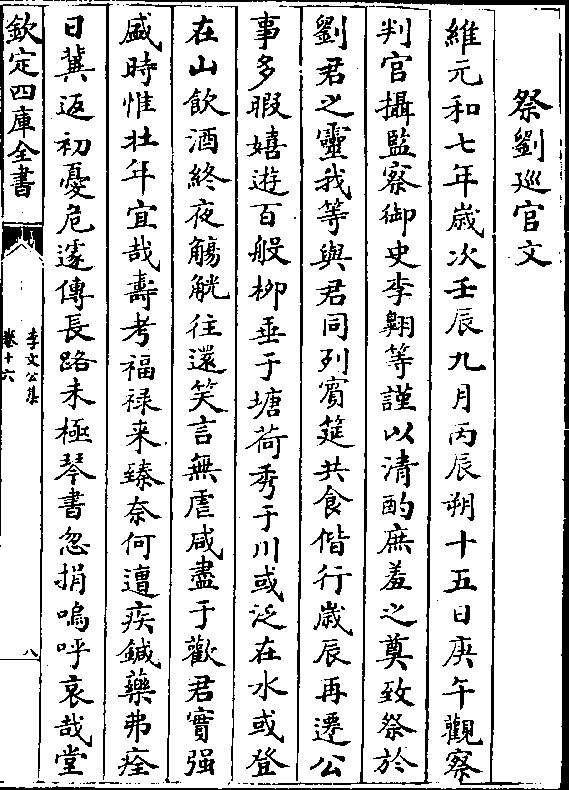 祭劉巡官文
維元和七年歳次壬辰九月丙辰朔十五日庚午觀察
判官攝監察御史李翺等謹以清酌庶羞之奠致祭於
劉君之靈我等與君同列賓筵共食偕行歳辰再遷公
事多暇嬉遊百般栁垂于塘荷秀于川或泛在水或登
在山飲酒終夜觴觥往還笑言無虐咸盡于歡君實强
盛時惟壮年宜哉壽考福禄来臻奈何遭疾鍼藥弗痊
日冀返初憂危遽傳長路未極琴書忽捐嗚呼哀哉堂
欽定四庫全書
李文公集
卷十六
八